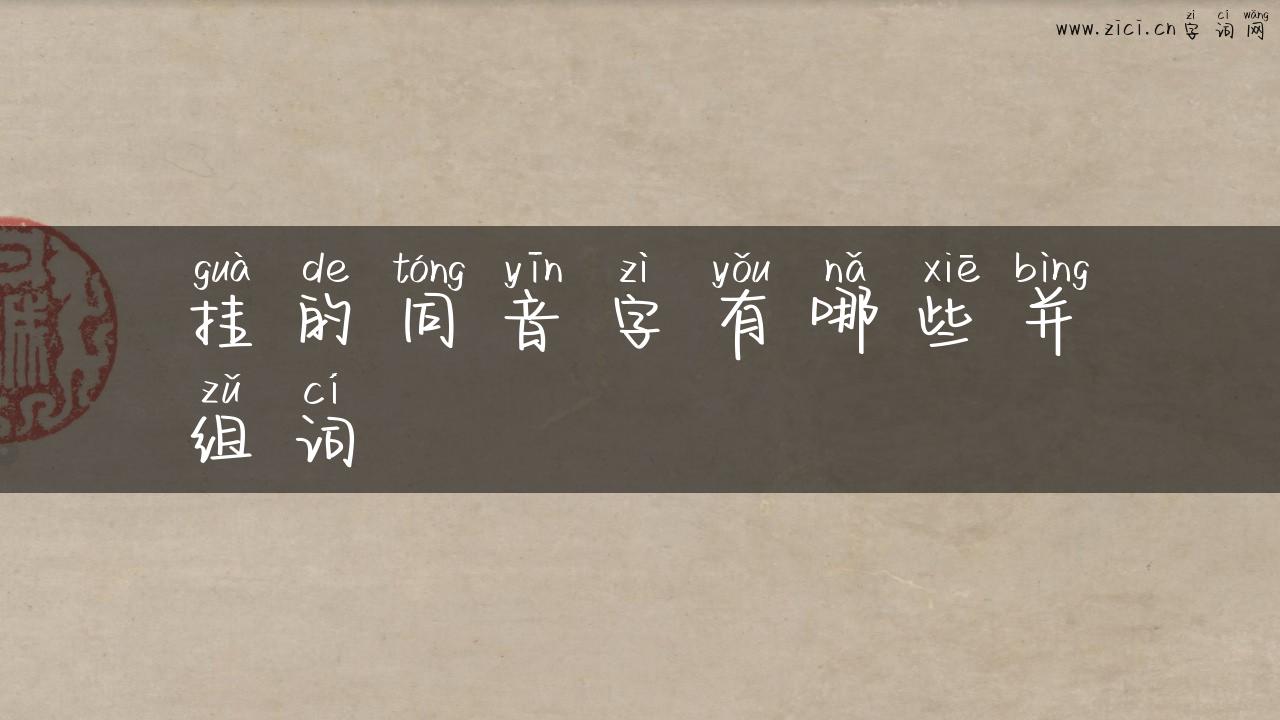 zì cí wǎng
www.zici.cn 字词网
guà de tóng yīn zì yǒu nǎ xiē bìng
挂的同音字有哪些并
zǔ cí
组词